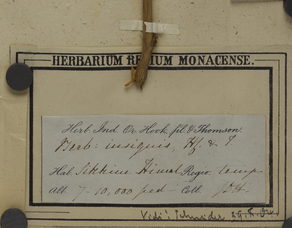 HERBARIUM REGIUM MONACENSE.
Herb. Ind. Or. Hook. fil. & Thomson
Berb. insignis, Hf & T
Hab. Sikkim Himal Regio temp.
Alt. 7-10,000 ped. Coll. J.D.H.
Vidi: Schneider